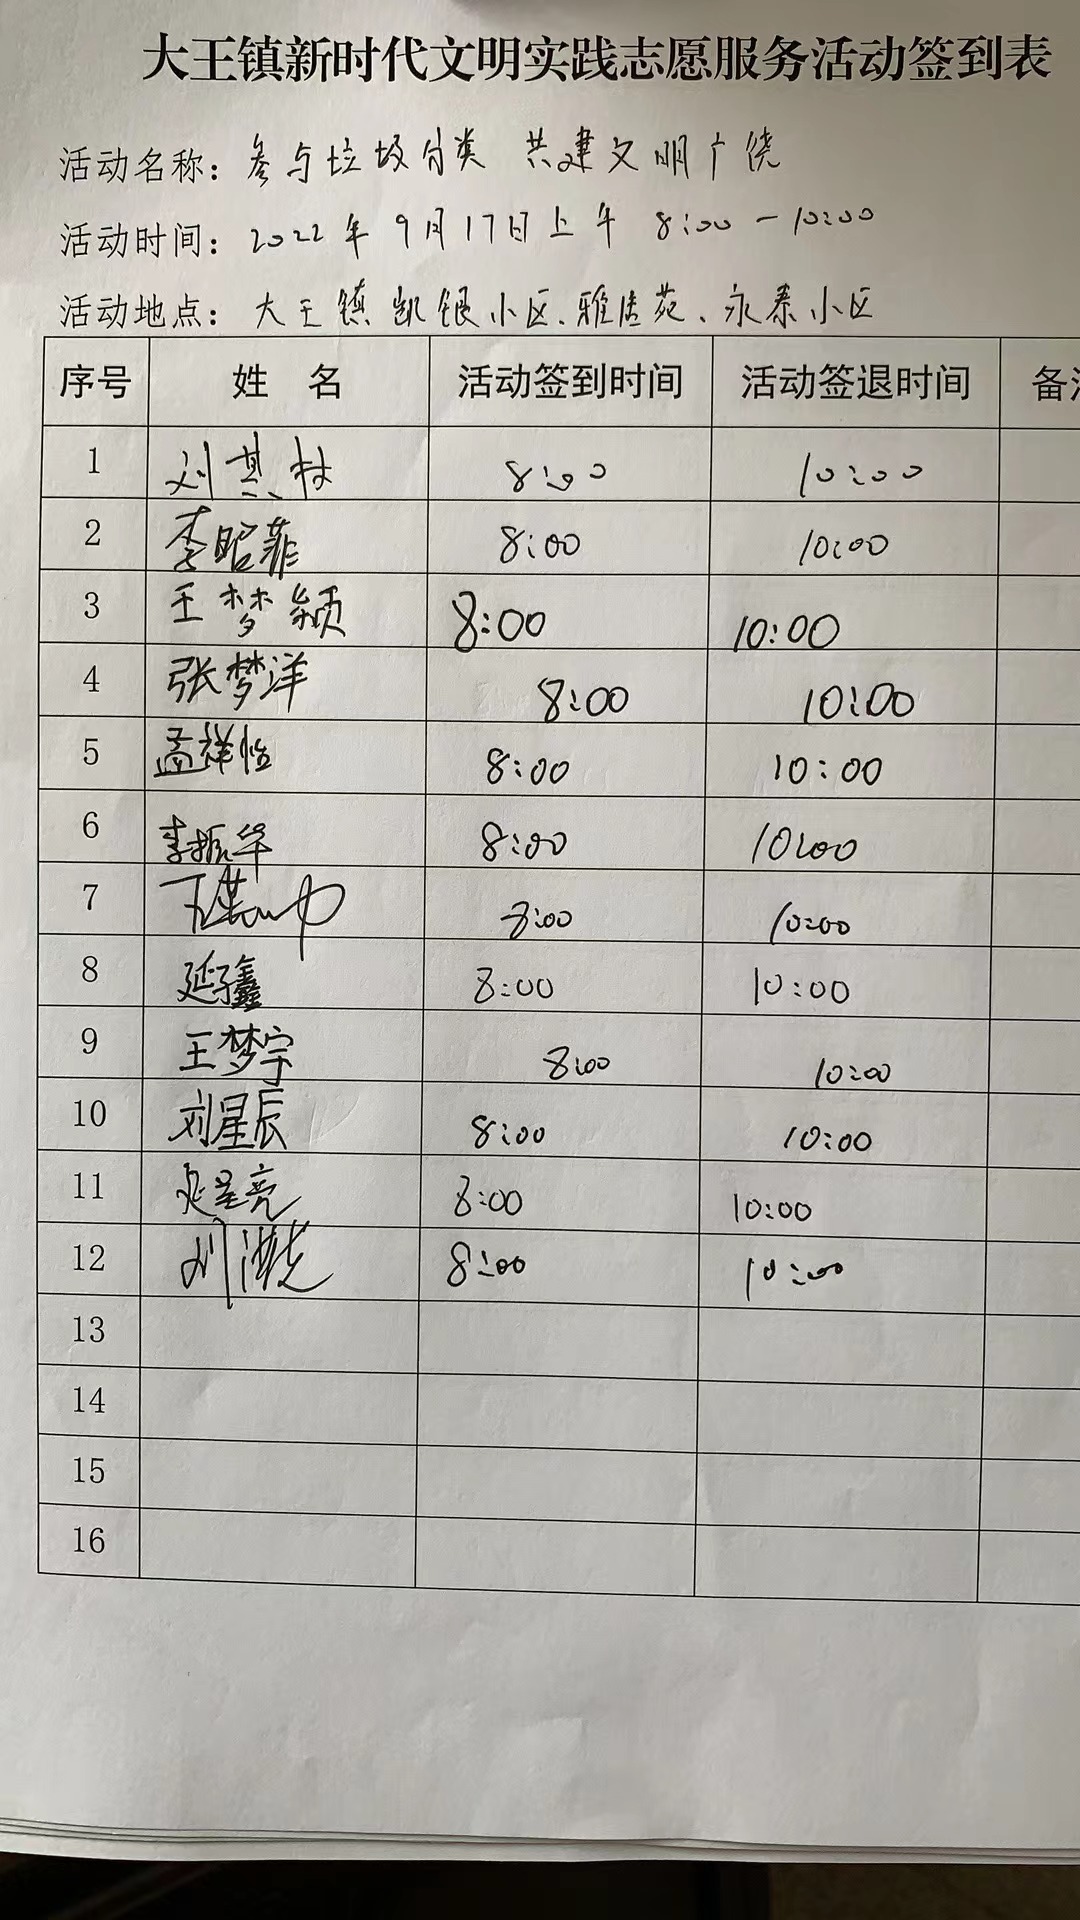 大王镇新时代文明实践志愿服务活动签到表
活动名称：参与垃圾分类 共建文明广饶
活动时间：2022年9月17日上午 8:00-10:00
活动地点：大王镇凯银小区、雅洁苑、永泰小区
序号 姓 名 活动签到时间 活动签退时间 备
1 刘其林 8:00 10:00
2 李昭菲 8:00 10:00
3 王梦颖 8:00 10:00
4 张梦洋 8:00 10:00
5 孟祥怡 8:00 10:00
6 李振华 8:00 10:00
7 8:00 10:00
8 延子鑫 8:00 10:00
9 王梦宇 8:00 10:00
10 刘星辰 8:00 10:00
11 星亮 8:00 10:00
12 刘 8:00 10:00
13
14
15
16